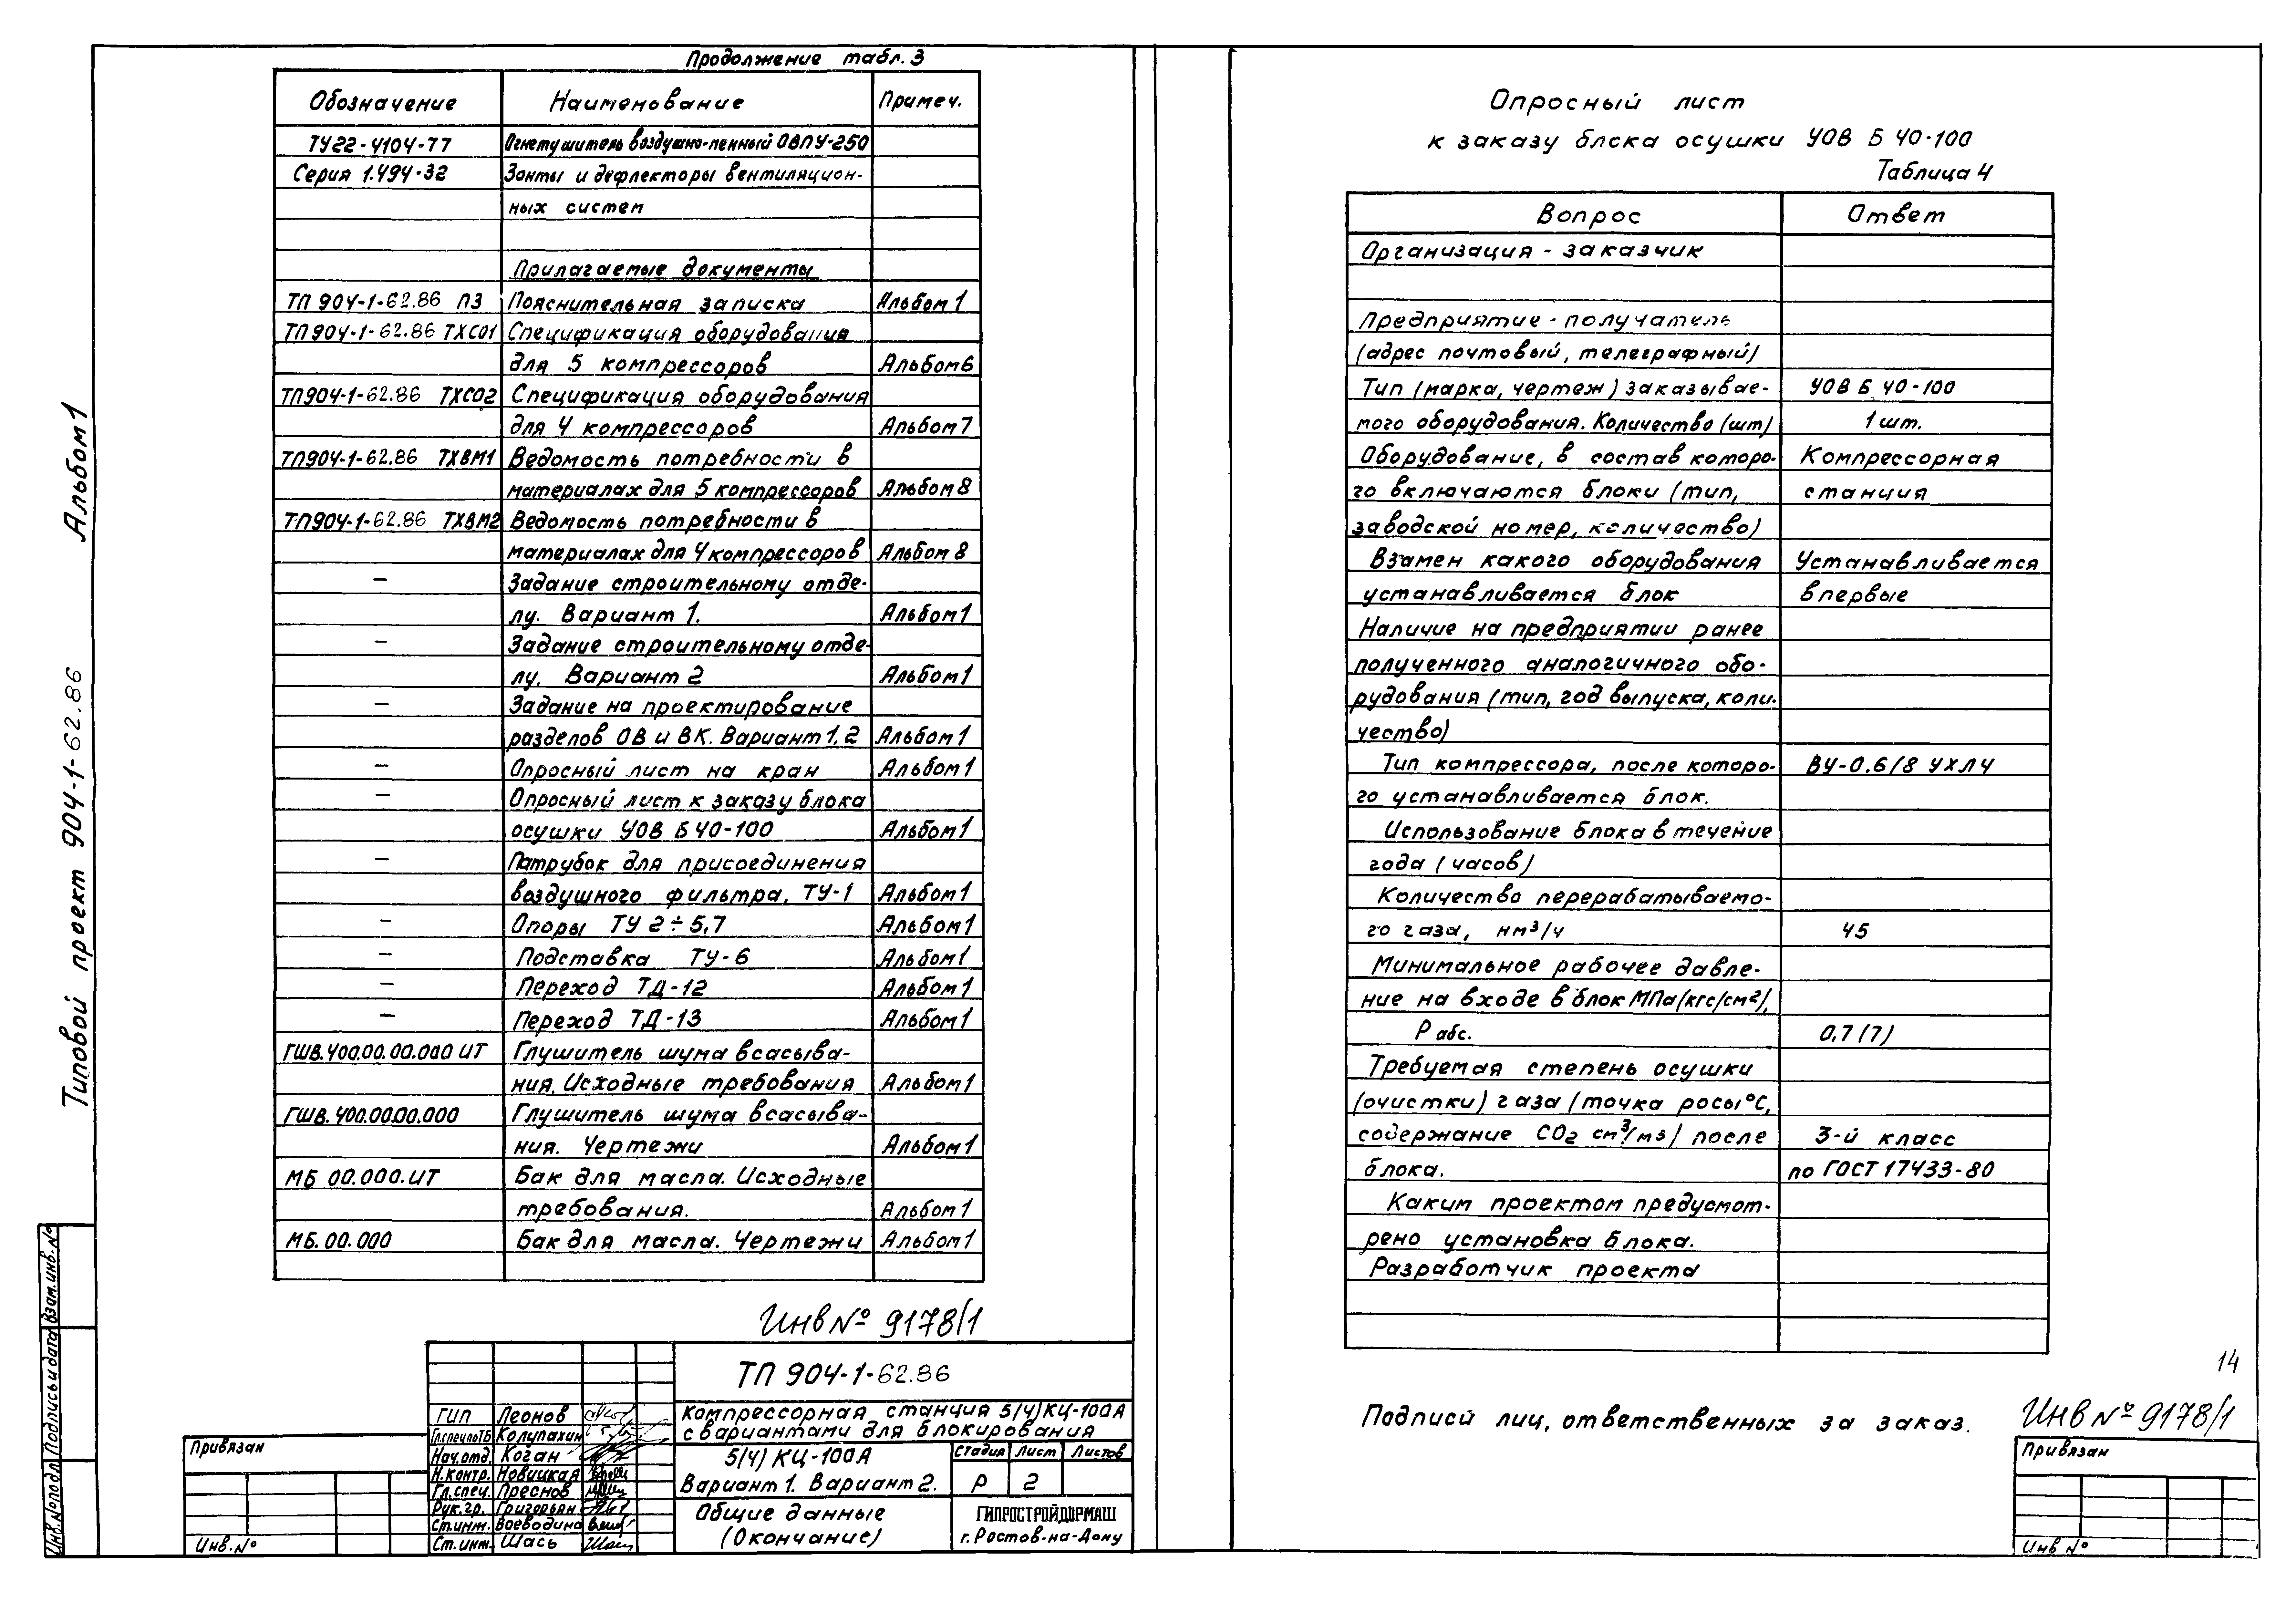 Продолжение табл. 3
Обозначение Наименование Примеч.
ТУ22-4104-77 Огнетушитель воздушно-пенный ОВПУ-250
Серия 1.494-32 Зонты и дефлекторы вентиляцион-
ных систем
Прилагаемые документы
ТП 904-1-62.86 ПЗ Пояснительная записка Альбом 1
ТП904-1-62.86 ТХСО1 Спецификация оборудования
для 5 компрессоров Альбом 6
ТП904-1-62.86 ТХСО2 Спецификация оборудования
для 4 компрессоров Альбом 7
ТП904-1-62.86 ТХВМ1 Ведомость потребности в
материалах для 5 компрессоров Альбом 8
ТП904-1-62.86 ТХВМ2 Ведомость потребности в
материалах для 4 компрессоров Альбом 8
— Задание строительному отде-
лу. Вариант 1. Альбом 1
— Задание строительному отде-
лу. Вариант 2 Альбом 1
— Задание на проектирование
разделов ОВ и ВК. Вариант 1, 2 Альбом 1
— Опросный лист на кран Альбом 1
— Опросный лист к заказу блока
осушки УОВ Б 40-100 Альбом 1
— Патрубок для присоединения
воздушного фильтра, ТУ-1 Альбом 1
— Опоры ТУ 2÷5,7 Альбом 1
— Подставка ТУ-6 Альбом 1
— Переход ТД-12 Альбом 1
— Переход ТД-13 Альбом 1
ГШВ.400.00.00.000 ИТ Глушитель шума всасыва-
ния. Исходные требования Альбом 1
ГШВ.400.00.00.000 Глушитель шума всасыва-
ния. Чертежи Альбом 1
МБ 00.000.ИТ Бак для масла. Исходные
требования. Альбом 1
МБ.00.000 Бак для масла. Чертежи Альбом 1
Инв № 9178/1
Типовой проект 904-1-62.86 Альбом 1
Инв.№ подл. Подпись и дата Взам.инв.№
Привязан
Инв. №
ТП 904-1-62.86
Компрессорная станция 5(4)КЦ-100А
с вариантами для блокирования
5(4) КЦ-100А
Вариант 1. Вариант 2.
Стадия Лист Листов
Р 2
Общие данные
(Окончание)
ГИПРОСТРОЙДОРМАШ
г. Ростов-на-Дону
ГИП Леонов
Гл.спец.поТБ Колупахин
Нач.отд. Коган
Н.контр. Новицкая
Гл.спец. Преснов
Рук.гр. Григорьян
Ст.инж. Воеводина
Ст.инж. Шась
Опросный лист
к заказу блока осушки УОВ Б 40-100
Таблица 4
Вопрос Ответ
Организация - заказчик
Предприятие - получатель
(адрес почтовый, телеграфный)
Тип (марка, чертеж) заказывае- УОВ Б 40-100
мого оборудования. Количество (шт) 1 шт.
Оборудование, в состав которо- Компрессорная
го включаются блоки (тип, станция
заводской номер, количество)
Взамен какого оборудования Устанавливается
устанавливается блок впервые
Наличие на предприятии ранее
полученного аналогичного обо-
рудования (тип, год выпуска, коли-
чество)
Тип компрессора, после которо- ВУ-0,6/8 УХЛ4
го устанавливается блок.
Использование блока в течение
года (часов)
Количество перерабатываемо-
го газа, нм³/ч 45
Минимальное рабочее давле-
ние на входе в блок МПа (кгс/см²),
Р абс. 0,7 (7)
Требуемая степень осушки
(очистки) газа (точка росы °С,
содержание СО₂ см³/м³) после 3-й класс
блока. по ГОСТ 17433-80
Каким проектом предусмот-
рено установка блока.
Разработчик проекта
Подписи лиц, ответственных за заказ.
14
Инв № 9178/1
Привязан
Инв №